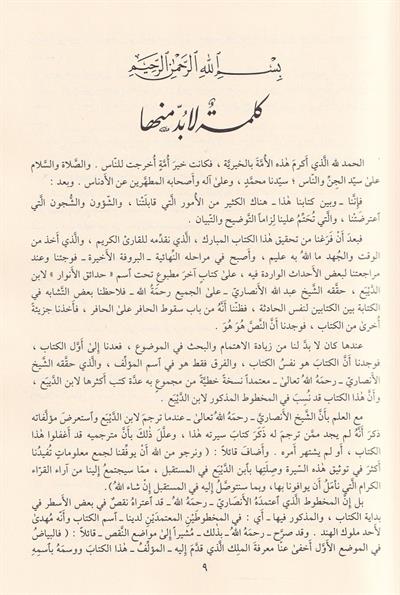 بسم الله الرحمن الرحيم
كلمة لا بد منها
الحمد لله الَّذي أكرمَ هٰذه الأُمَّةَ بالخيريَّة ، فكانت خيرَ أُمَّةٍ أُخرجت للنّاس . والصَّلاة والسَّلام
علىٰ سيِّد الجِنِّ والنّاس ؛ سيِّدنا محمَّدٍ ، وعلىٰ آله وأصحابه المطهَّرين عن الأدناس . وبعد :
فإنَّنا ـ وبين كتابنا هٰذا ـ هناك الكثير من الأُمور الَّتي قابلَتْنا ، والشّؤون والشُّجون الَّتي
ٱعترضَتْنا ، والَّتي تُحتِّم علينا لِزاماً التَّوضيح والتِّبيان .
فبعدَ أنْ فَرَغنا من تحقيق هٰذا الكتاب المبارك ، الَّذي نقدِّمه للقارئ الكريم ، والَّذي أخذ من
الوقت والجُهد ما اللهُ به عليم ، وأصبح في مراحله النِّهائية ـ البروفة الأخيرة ـ فوجئنا وعند
مراجعتنا لبعض الأحداث الواردة فيه ، علىٰ كتابٍ آخرَ مطبوع تحت ٱسم « حدائق الأنوار » لابن
الدَّيْبَع ، حقَّقه الشَّيخ عبد الله الأنصاريّ ـ علىٰ الجميع رحمَةُ الله ـ فلاحظنا بعض التَّشابه في
الكتابة بين الكتابين لنفس الحادثة ، فظنَّنا أنَّه من باب سقوط الحافر علىٰ الحافر ـ فأخذنا جزئيةً
أُخرىٰ من الكتاب ، فوجدنا أنَّ النَّصَّ هُوَ هُوَ .
عندها كان لا بدَّ لنا من زيادة الاهتمام والبحث في الموضوع ، فعدنا إلىٰ أوَّل الكتاب ،
فوجدنا أنَّ الكتابَ هو نفسُ الكتاب ، والفرق فقط هو في ٱسم المؤلِّف ، والَّذي حقَّقه الشَّيخ
الأنصاريّ ـ رحمَهُ اللهُ تعالىٰ ـ معتمداً نسخةً خطيَّةً من مجموعٍ به عدَّة كتب أكثرها لابن الدَّيْبَع ،
وأنَّ هٰذا الكتاب قد نُسِبَ في المخطوط المذكور لابن الدَّيْبَع .
مع العلم بأنَّ الشَّيخ الأنصاريَّ ـ رحمَهُ اللهُ تعالىٰ ـ عندما ترجمَ لابن الدَّيْبَع وٱستعرضَ مؤلَّفاته
ذكرَ أنَّه لم يجد ممَّن ترجم له ذَكَرَ كتابَ سيرته هٰذا ، وعلَّل ذٰلكَ بأنَّ مترجميه قد أغفلوا هٰذا
الكتاب ، أو لم يشتهر أمره . وأضافَ قائلاً : ( ونرجو من الله أنْ يوفِّقنا لجمع معلوماتٍ تُفيدُنا
أكثر في توثيق هٰذه السِّيرة وصِلَتِها بٱبن الدَّيْبَع في المستقبل ، ممّا سيجتمعُ إلينا من آراء القرّاء
الكرام الَّتي نأمَلُ أن يوافونا بها ، وبما سنتوصَّل إليه في المستقبل إن شاء الله ) .
بل إنَّ المخطوط الَّذي ٱعتمدَهُ الأنصاريّ ـ رحمَهُ اللهُ ـ قد ٱعتراهُ نقصٌ في بعض الأسطر في
بداية الكتاب ، والمذكور فيها ـ أي : في المخطوطَيْنِ المعتمَدَيْنِ لدينا ـ ٱسم الكتاب وأنَّه مُهدىً
لأحد ملوك الهند . وقد صرَّح ـ رحمَهُ اللهُ ـ بذٰلك ـ مُشيراً إلىٰ مواضع النَّقص ـ قائلاً : ( فالبياضُ
في الموضع الأوَّل أخفىٰ عنّا معرفةَ الملِكِ الَّذي قدَّمَ إليه ـ المؤلِّفُ ـ هٰذا الكتابَ ووسمَهُ بٱسمِهِ
٩